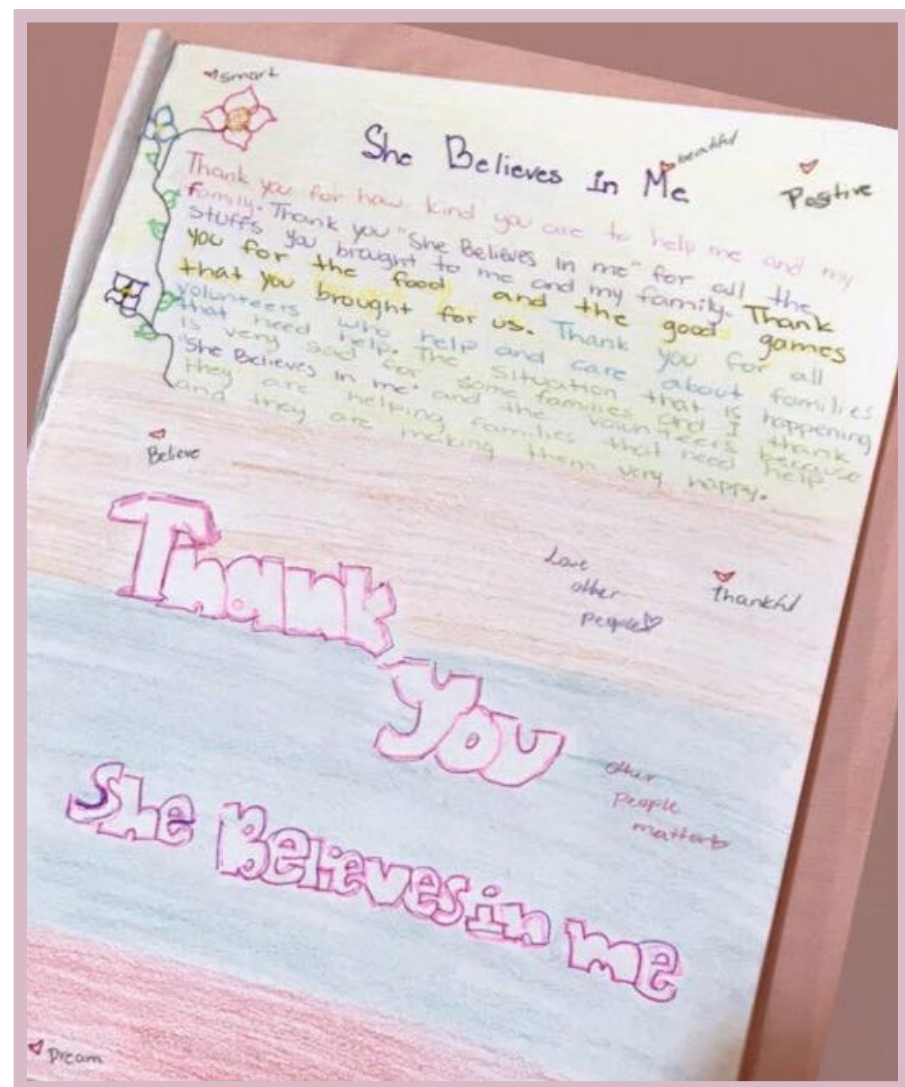 smart
She Believes in Me
beatiful
Positive
Thank you for how kind you are to help me and my
family. Thank you "She Believes in me" for all the
stuffs you brought to me and my family. Thank
you for the food and the good games
that you brought for us. Thank you for all
volunteers who help and care about families
that need help. The situation that is happening
is very sad for some families and I thank
"She Believes in me" and the volunteers because
they are helping families that need help
and they are making them very happy.
Believe
Thank
You
Love
other
people
thankful
other
people
matters
She Believes in me
Dream